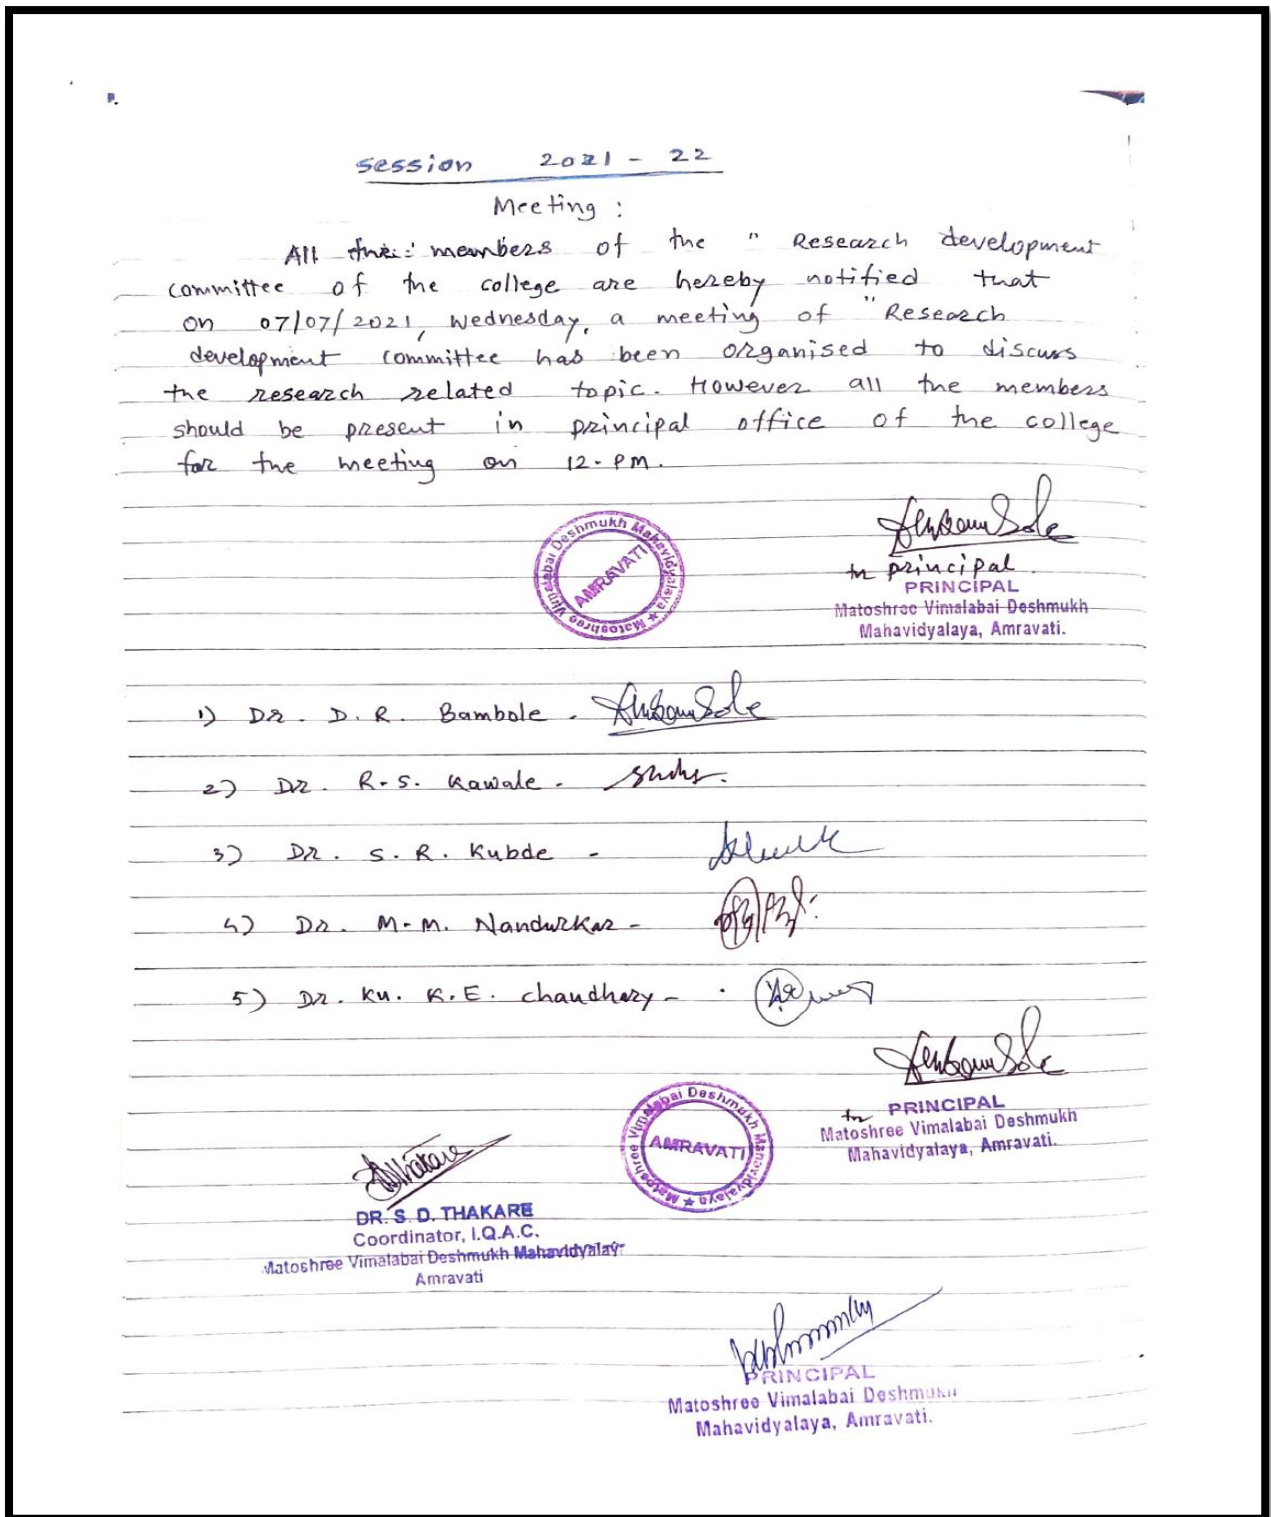 P.
Session 2021 - 22
Meeting :
All the members of the " Research development
committee of the college are hereby notified that
on 07/07/2021, Wednesday, a meeting of "Research
development committee has been organised to discuss
the research related topic. However all the members
should be present in principal office of the college
for the meeting on 12. PM.
Matoshree Vimalabai Deshmukh Mahavidyalaya ★
AMRAVATI
principal
PRINCIPAL
Matoshree Vimalabai Deshmukh
Mahavidyalaya, Amravati.
1) Dr. D. R. Bambole -
2) Dr. R. S. Kawale -
3) Dr. S. R. Kubde -
4) Dr. M. M. Nandurkar -
5) Dr. Ku. K. E. chaudhary -
PRINCIPAL
Matoshree Vimalabai Deshmukh
Mahavidyalaya, Amravati.
Matoshree Vimalabai Deshmukh Mahavidyalaya ★
AMRAVATI
SDThakare
DR. S. D. THAKARE
Coordinator, I.Q.A.C.
Matoshree Vimalabai Deshmukh Mahavidyalay
Amravati
PRINCIPAL
Matoshree Vimalabai Deshmukh
Mahavidyalaya, Amravati.